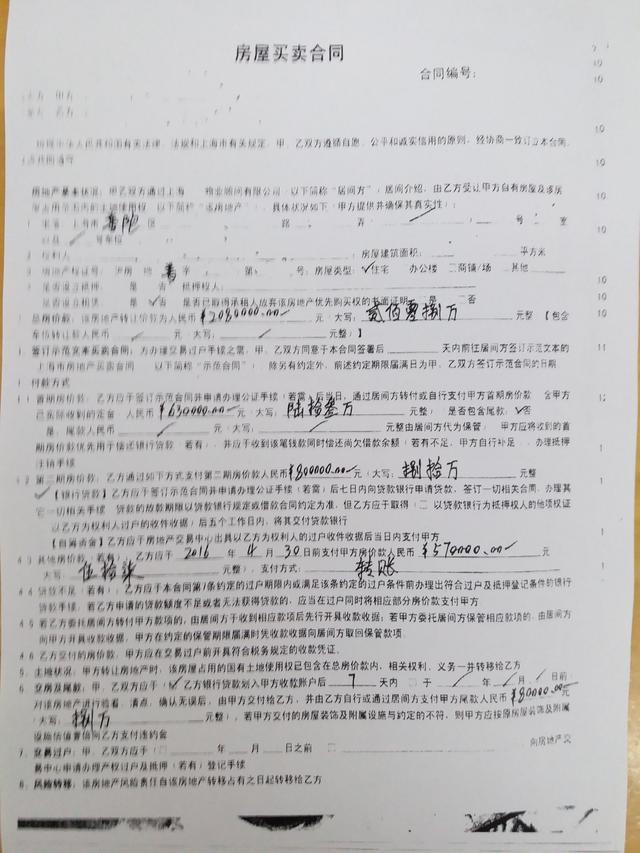 房屋买卖合同
合同编号：
房地产基本状况，甲乙双方通过上海 物业顾问有限公司（以下简称“居间方”）居间介绍，由乙方受让甲方自有房屋及该房
屋占用范围内的土地使用权（以下简称“该房地产”），具体状况如下（甲方提供并确保其真实性）：
上海市 普陀 区 路 弄 号 室
权利人 房屋建筑面积： 平方米
房地产权证号：沪房地 普 字（ 第 号；房屋类型：✓住宅 办公楼 商铺/场 其他
是否设立抵押 是 否 抵押权人：
是否设立租赁 是 否 是否已取得承租人放弃该房地产优先购买权的书面证明 是 否
总房价款，该房地产转让价款为人民币 ¥2080000.00 元（大写：贰佰零捌万 元整）【包含
车位转让款人民币 元（大写： 元整）】
签订示范文本买卖合同：为办理交易过户手续之需，甲、乙双方同意于本合同签署后 天内前往居间方签订示范文本的
《上海市房地产买卖合同》（以下简称“示范合同”）除另有约定外，前述约定期限届满日为甲、乙双方签订示范合同的日期
付款方式
首期房价款，乙方应于签订示范合同并申请办理公证手续（若需）后当日，通过居间方转付或自行支付甲方首期房价款（含甲方
已实际收到的定金）人民币 ¥630000.00 元（大写：陆拾叁万 元整），是否包含尾款：✓否
是，尾款人民币 元（大写： 元整由居间方代为保管） 甲方应将收到的首
期房价款优先用于偿还银行贷款（若有），并应于收到该笔钱款同时偿还尚欠借款余额（若有不足，甲方自行补足），办理抵押
注销手续
4.2 第二期房价款，乙方通过如下方式支付第二期房价款人民币 ¥800000.00 元（大写：捌拾万 元整
✓【银行贷款】乙方应于签订示范合同并申请办理公证手续（若需）后七日内向贷款银行申请贷款，签订一切相关合同，办理其
它一切相关手续 贷款的放款期限以贷款银行规定或借款合同约定为准，但乙方应于取得（二 以贷款银行为抵押权人的他项权证
以乙方为权利人过户的收件收据）后五个工作日内，将其交付贷款银行
【自筹资金】乙方应于房地产交易中心出具以乙方为权利人的过户收件收据后当日内支付甲方
4.3 其他房价款（若有），乙方应于 2016 年 4 月 30 日前支付甲方房价款人民币 ¥570000.00 元
大写：伍拾柒 元整），支付方式：转账
4.4 贷款不足（若有）：乙方应于本合同第7条约定的过户期限内或满足该条约定的过户条件前办理出符合过户及抵押登记条件的银行
贷款手续，若乙方申请的贷款额度不足或者无法获得贷款的，应当在过户同时将相应部分房价款支付甲方
4.5 若乙方委托居间方转付甲方款项的，由居间方于收到相应款项后先行开具收款收据；若甲方委托居间方保管相应款项的，由居间方
向甲方开具收款收据，甲方在约定的保管期限届满时凭收款收据向居间方取回保管款项
4.6 乙方交付的房价款，甲方应在交易过户前开具符合税务规定的收款凭证。
5. 土地状况，甲方转让房地产时，该房屋占用的国有土地使用权已包含在总房价款内，相关权利、义务一并转移给乙方
6. 交房及尾款，甲、乙双方应于（✓乙方银行贷款划入甲方收款账户后 7 天内 □ 于 年 月 日前）
对该房地产进行验看、清点，确认无误后，由甲方交付给乙方，并由乙方自行或通过居间方支付甲方尾款人民币 ¥80000.00元
（大写：捌万 元整），若甲方交付的房屋装饰及附属设施与约定的不符，则甲方应按原房屋装饰及附属
设施估值差价向乙方支付违约金
7. 交易过户：甲、乙双方应于（□ 年 月 日之前 □ 向房地产交
易中心申请办理产权过户及抵押（若有）登记手续
8. 风险转移：该房地产风险责任自该房地产转移占有之日起转移给乙方